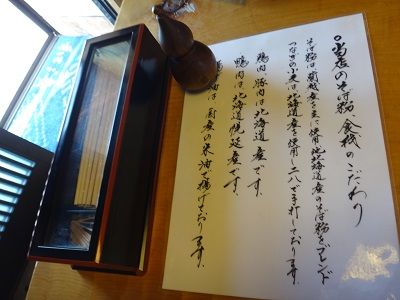 ◎当店のそば粉、食材のこだわり
そば粉は、蘭越産を主に使用し他北海道産のそば粉をブレンド
つなぎの小麦は北海道産を使用し二八で手打ちしております。
鶏肉、豚肉は北海道産です。
鴨肉は、北海道幌延産です。
油は、国産の米油で揚げております。